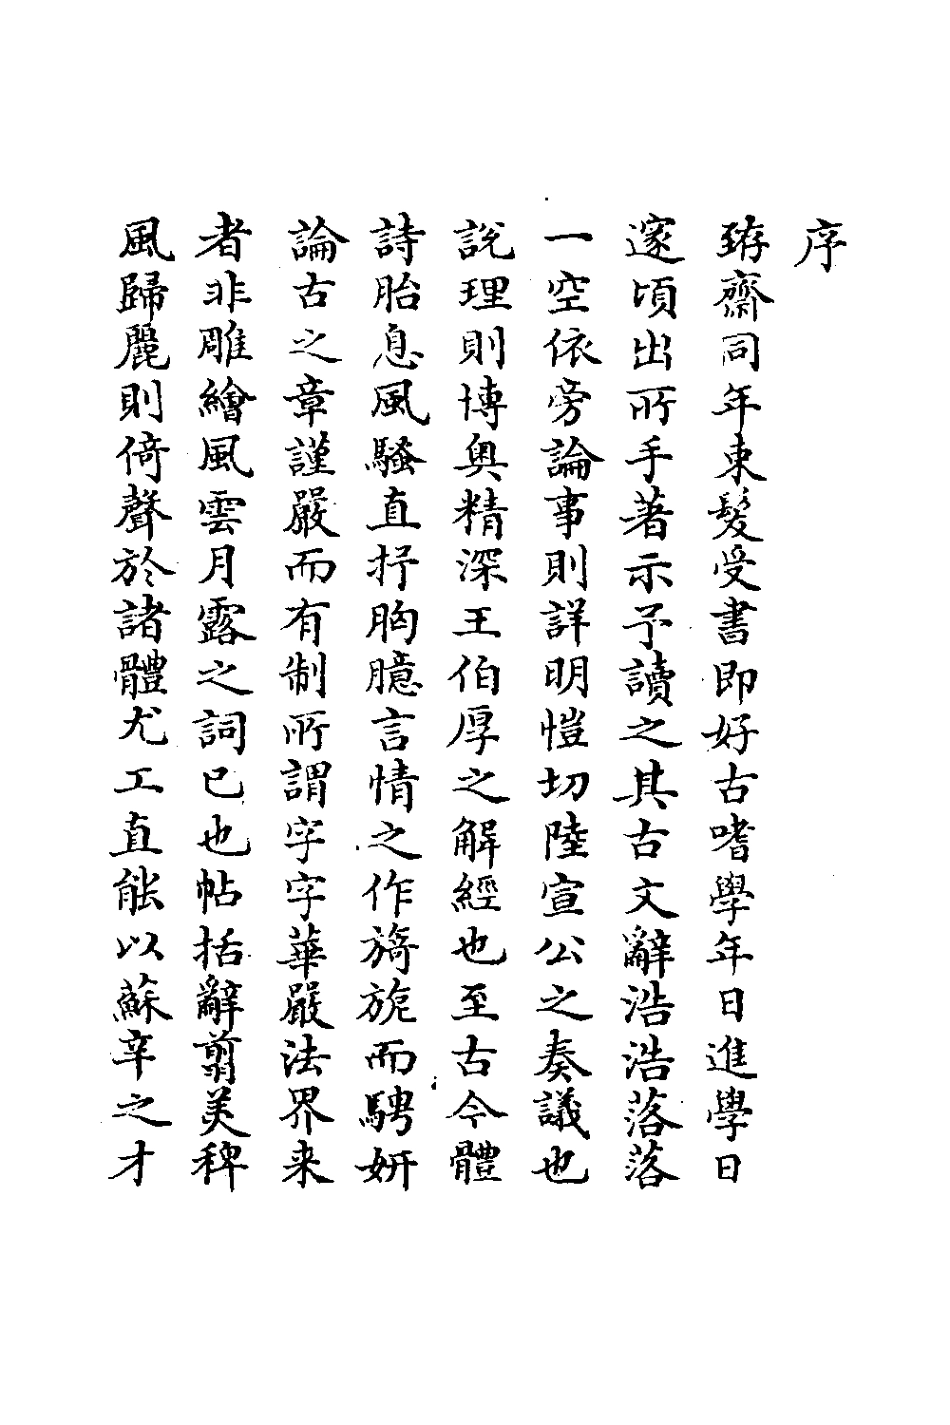 序
臶齋同年束髮受書即好古嗜學年日進學日
邃頃出所手著示予讀之其古文辭浩浩落落
一空依旁論事則詳明愷切陸宣公之奏議也
說理則博奥精深王伯厚之解經也至古今體
詩胎息風騷直抒胸臆言情之作旖旎而騁妍
論古之章謹嚴而有制所謂字字華嚴法界来
者非雕繪風雲月露之詞已也帖括辭翦美稗
風歸麗則倚聲於諸體尤工直能以蘇辛之才